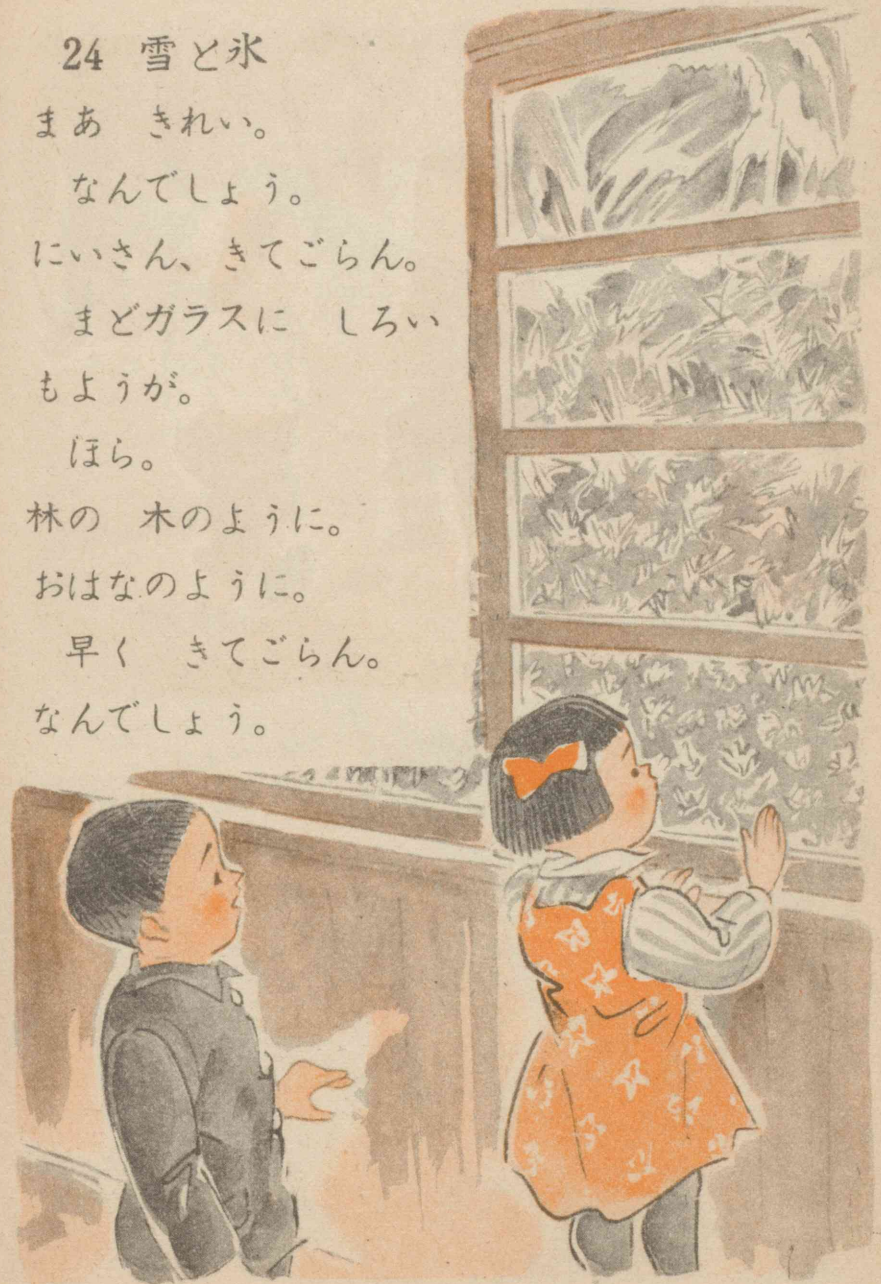 24 雪と氷
まあ きれい。
なんでしょう。
にいさん、きてごらん。
まどガラスに しろい
もようが。
ほら。
林の 木のように。
おはなのように。
早く きてごらん。
なんでしょう。